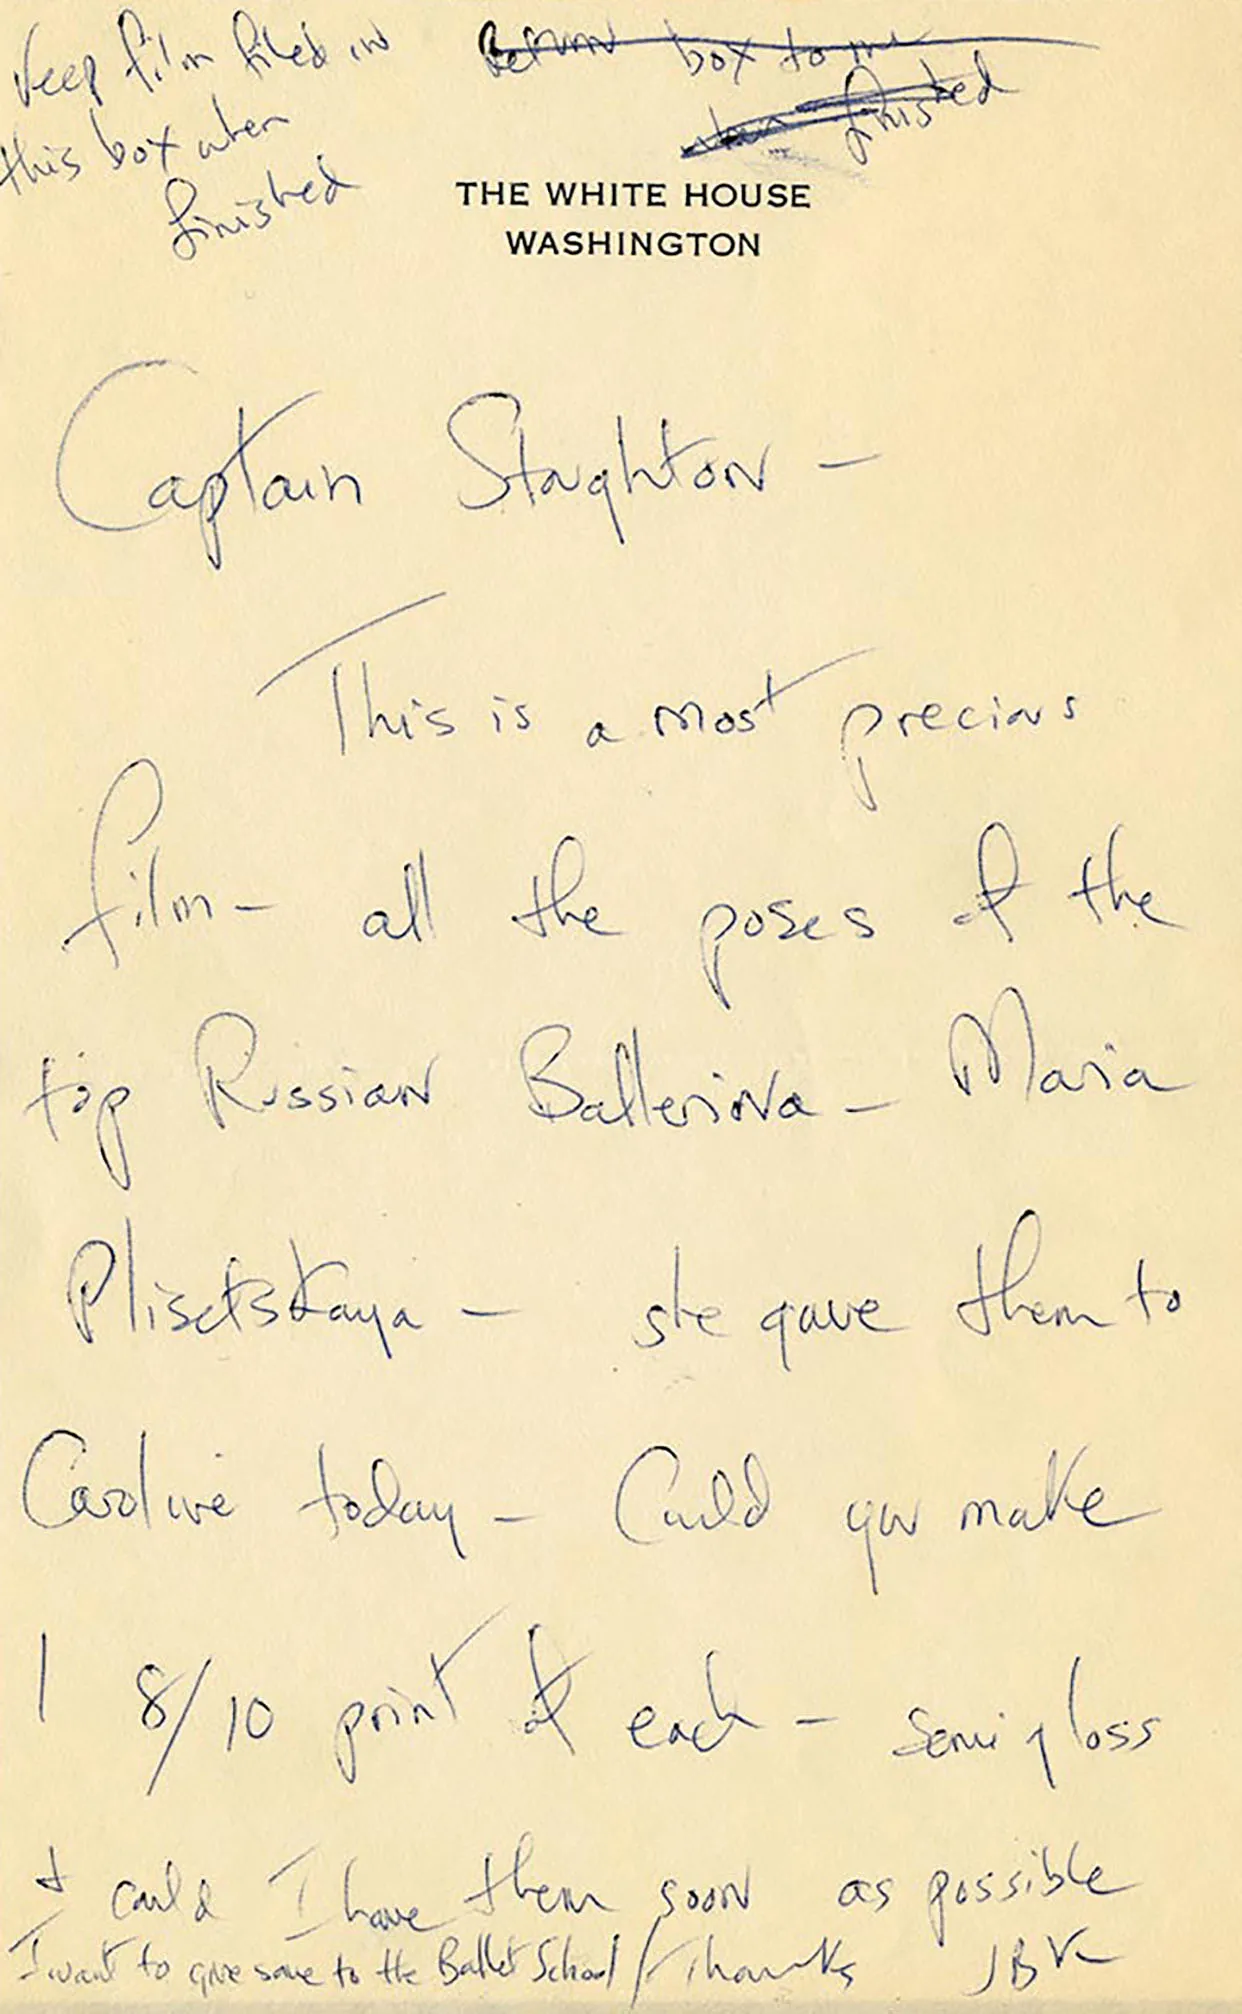 Keep film filed in
this box when
finished
Return box to me
when finished
THE WHITE HOUSE
WASHINGTON
Captain Stoughton —
This is a most precious
film — all the poses of the
top Russian Ballerina — Maria
Plisetskaya — she gave them to
Caroline today — Could you make
1 8/10 print of each — semi gloss
+ could I have them soon as possible
I want to give some to the Ballet School / Thanks JBK